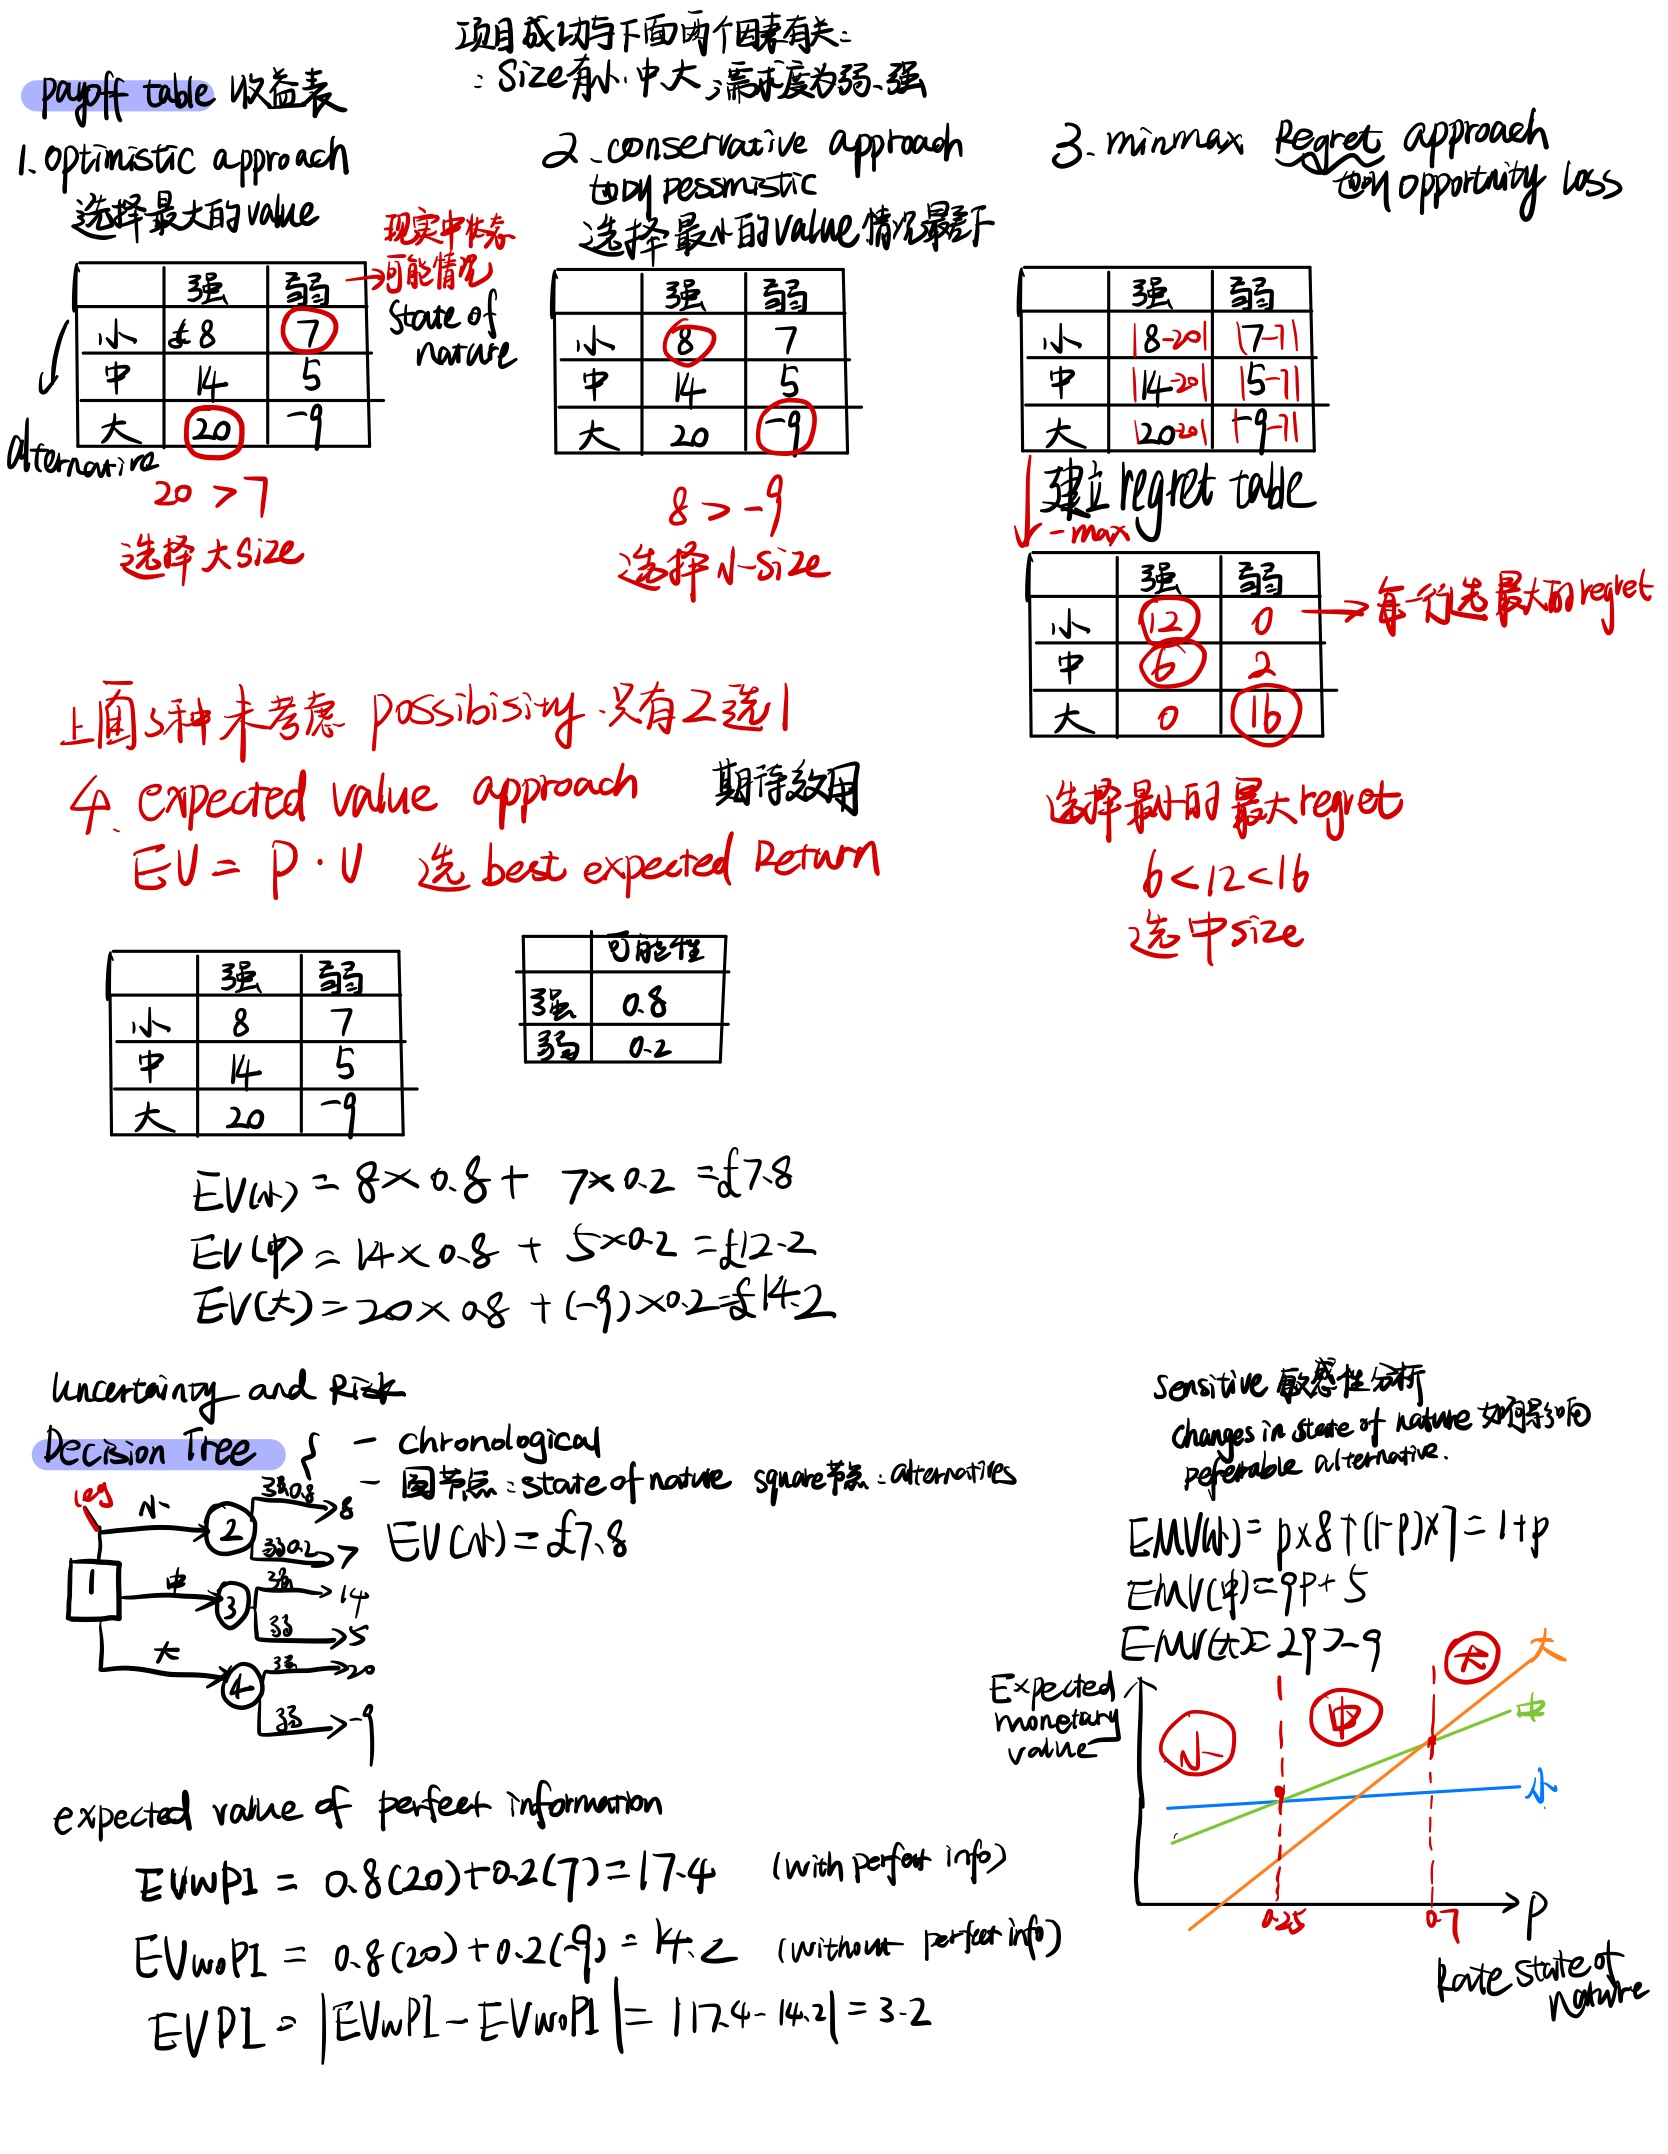 项目成功与下面两个因素有关:
: Size有小.中.大;需求度为弱.强
payoff table 收益表
1. optimistic approach
选择最大的value
现实中状态
可能情况
State of
nature
强 弱
小 £8 7
中 14 5
大 20 -9
alternative
20 > 7
选择大size
2. conservative approach
也叫pessmistic
选择最小的value情况最差下
强 弱
小 8 7
中 14 5
大 20 -9
8 > -9
选择小size
3. minmax Regret approach
也叫opportnity loss
强 弱
小 |8-20| |7-7|
中 |14-20| |5-7|
大 |20-20| |-9-7|
建立regret table
-max
强 弱
小 12 0
中 6 2
大 0 16
每一行选最大的regret
选择最小的最大regret
6<12<16
选中size
上面3种未考虑 possibisity.只有2选1
4. expected value approach 期待效用
EV = P·V 选 best expected Return
强 弱
小 8 7
中 14 5
大 20 -9
可能性
强 0.8
弱 0.2
EV(小) = 8×0.8 + 7×0.2 = £7.8
EV(中) = 14×0.8 + 5×0.2 = £12.2
EV(大) = 20×0.8 + (-9)×0.2 = £14.2
Uncertainty and Risk
Decision Tree { - chronological
- 圆节点: state of nature square节点: alternatives
leg
1
小 2 强0.8 8
弱0.2 7
EV(小) = £7.8
中 3 强 14
弱 5
大 4 强 20
弱 -9
expected value of perfect information
EVwPI = 0.8(20)+0.2(7) = 17.4 (with perfect info)
EVwoPI = 0.8(20)+0.2(-9) = 14.2 (without perfect info)
EVPI = |EVwPI - EVwoPI| = |17.4 - 14.2| = 3.2
Sensitive 敏感性分析
changes in state of nature 如何影响
peferrable alternative.
EMV(小) = p×8+(1-p)×7 = 7+p
EMV(中) = 9p+5
EMV(大) = 29p-9
Expected
monetary
value
小 中 大
大
中
小
0.25 0.7 P
Rate State of
nature